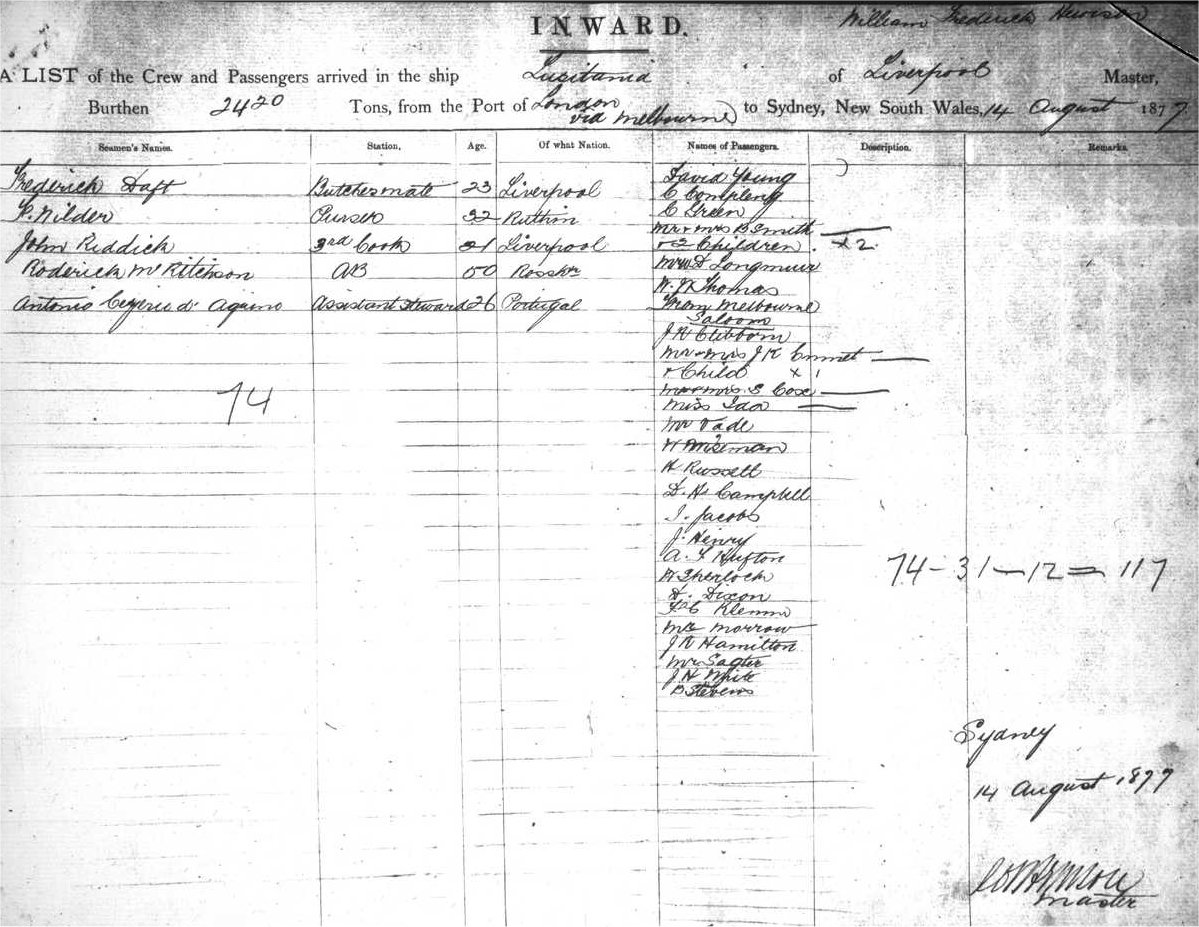 INWARD.
William Frederick Hewison
A LIST of the Crew and Passengers arrived in the ship Lusitania of Liverpool Master,
Burthen 2420 Tons, from the Port of London via Melbourne to Sydney, New South Wales, 14 August 1877
Seamen's Names. Station, Age. Of what Nation. Names of Passengers. Description. Remarks.
Frederick Daft Butchers mate 23 Liverpool David Young
C Compleng
F. Wilder Purser 32 Ruthin C Green
Mr & Mrs B Smith
John Riddick 3rd Cook 21 Liverpool & 2 Children . x 2.
Roderick McKitchson AB 50 Ross Longmuir
W. W Thomas
Antonio d' Aquino Assistant Steward 26 Portugal From Melbourne
Saloon
J R Clibborn
Mr & Mrs J K Emmet
& Child x 1
74 Mr & Mrs S Cox
Miss Ida
Mr Vade
W Wiseman
H Russell
D. H. Campbell
I. Jacobs
J. Henry
A. F Hufton
74 - 31 - 12 = 117
W Sherlock
D. Dixon
F C Klemm
Mr Morrow
J R Hamilton
Mr Sagter
J H White
B Stevens
Sydney
14 August 1877
Master